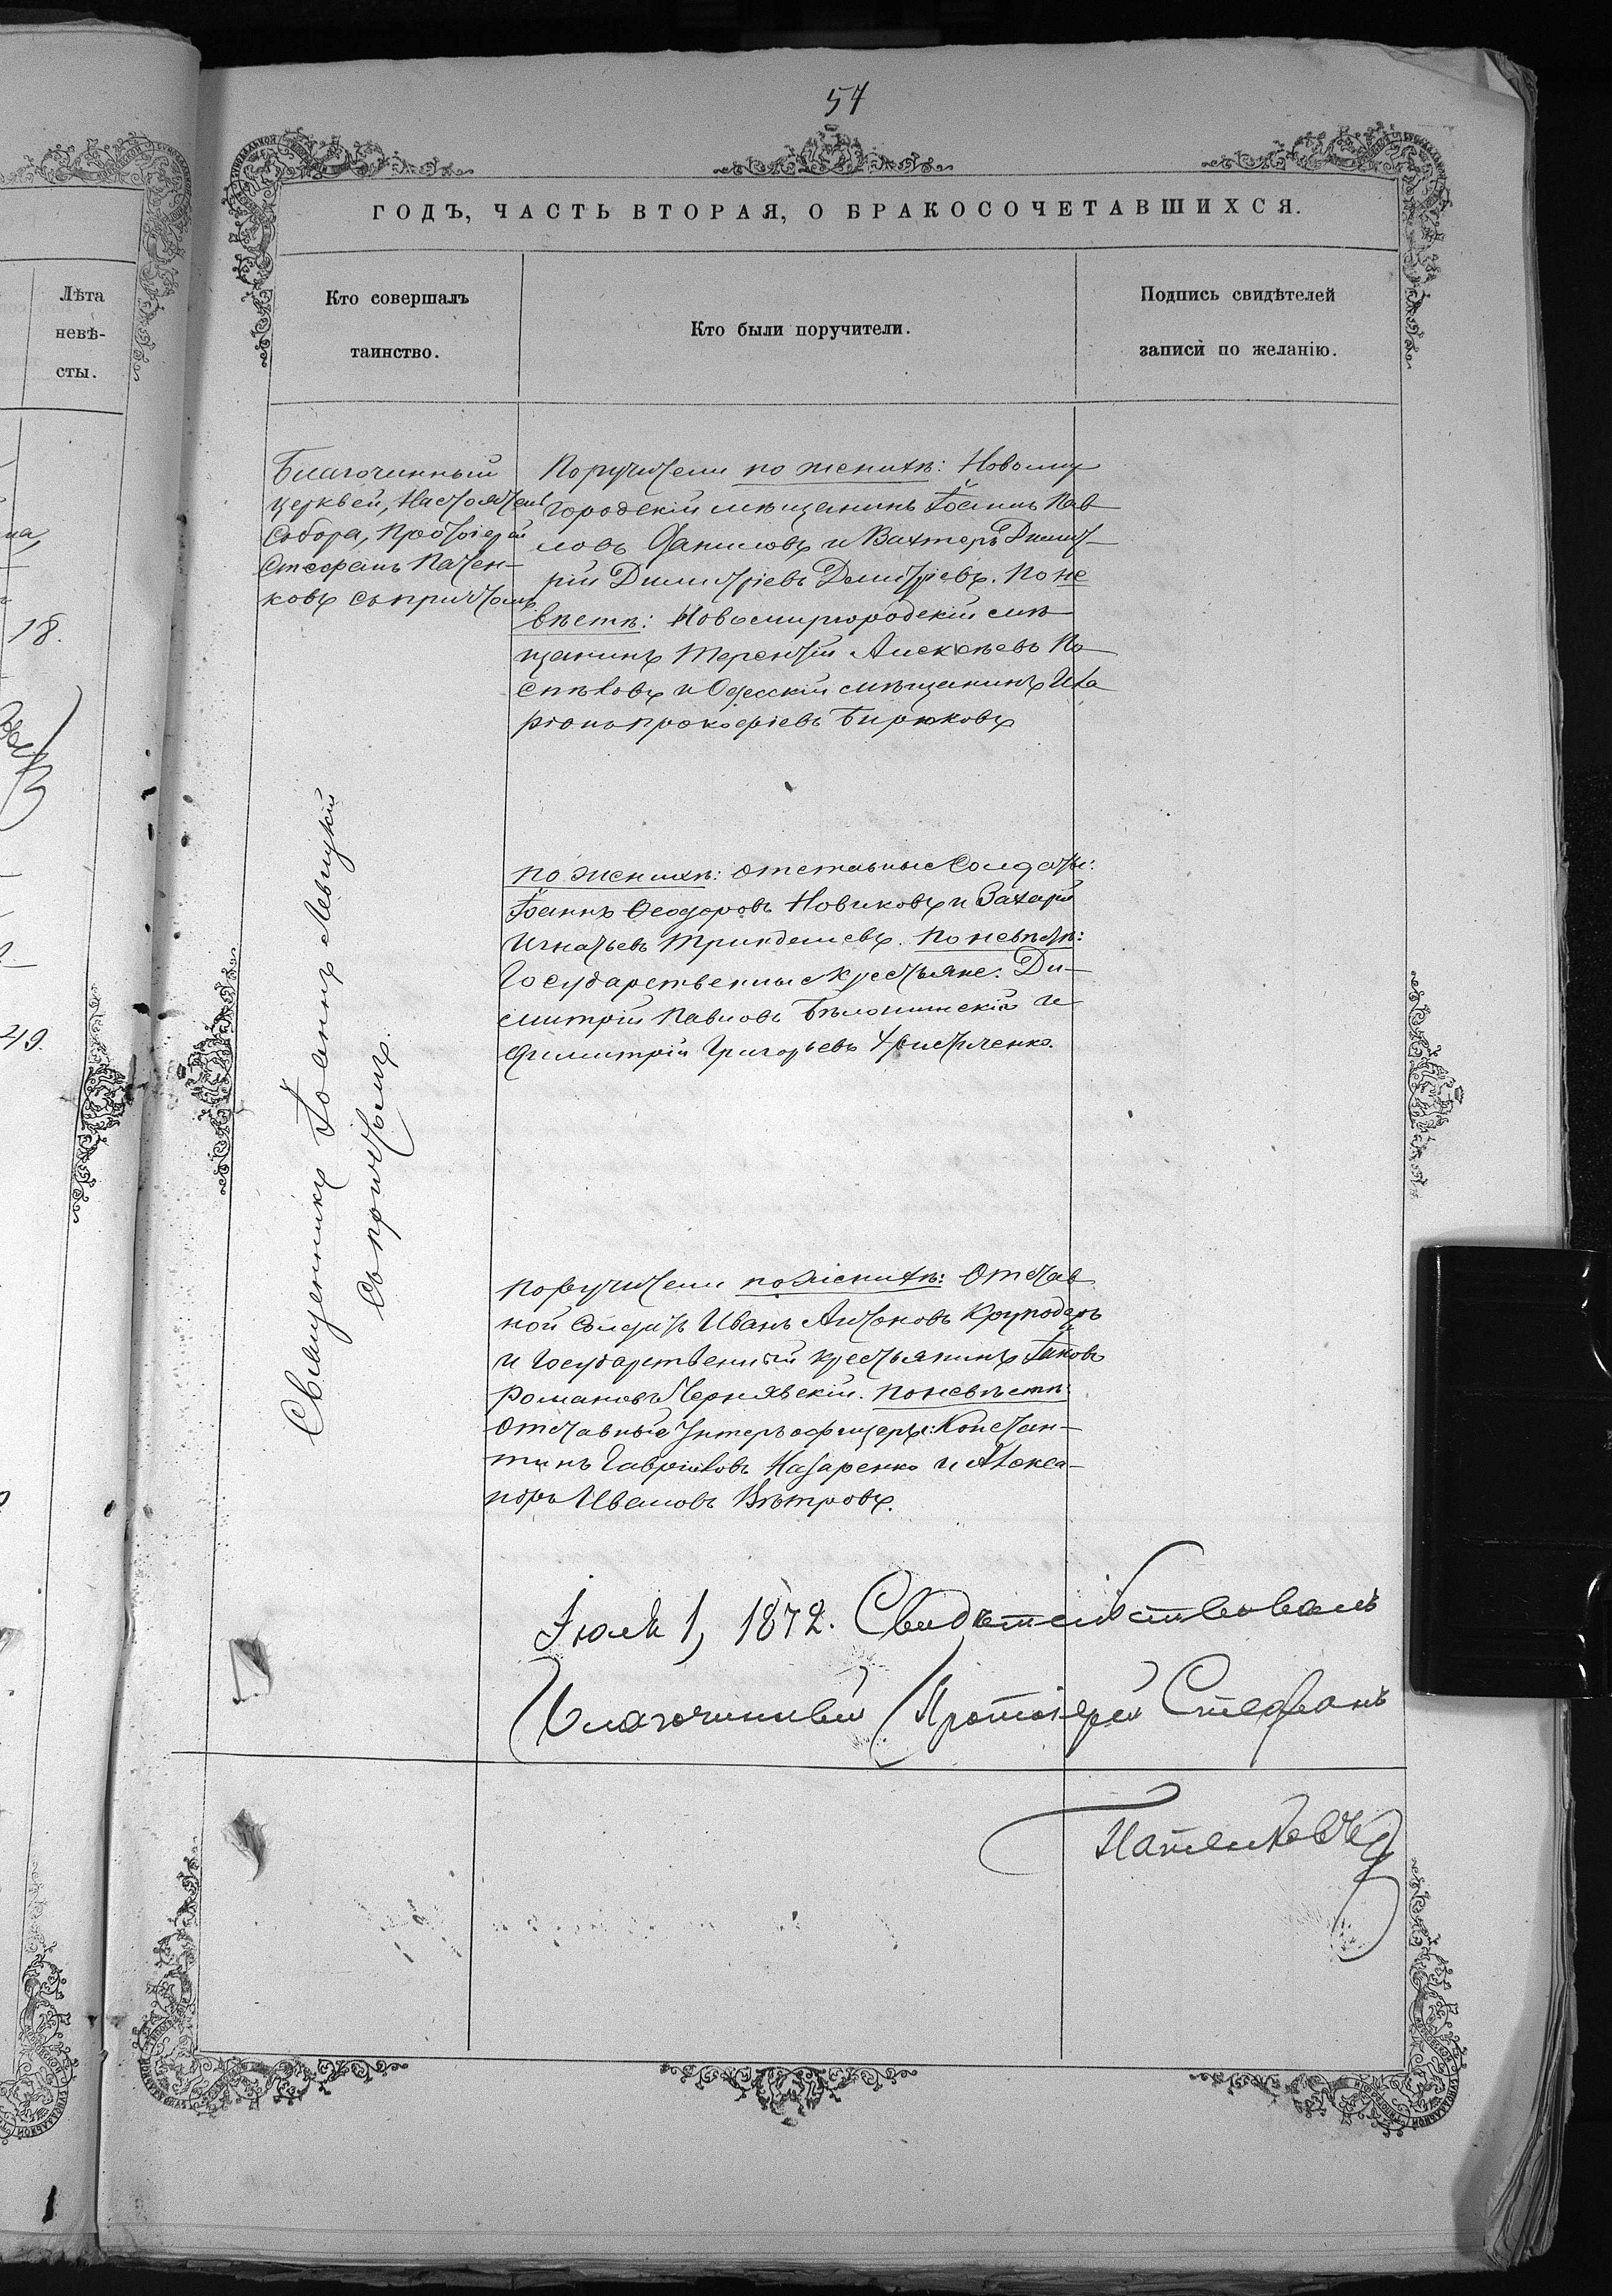 57
ГОДЪ, ЧАСТЬ ВТОРАЯ, О БРАКОСОЧЕТАВШИХСЯ.
Лѣта
невѣ-
сты.
18.
49.
Кто совершалъ
таинство.
Кто были поручители.
Подпись свидѣтелей
записи по желанію.
Благочинный
церквей, Настоятель
Собора, Протоіерей
Стефанъ Патен-
ковъ съ причтомъ
Поручители по женихѣ: Новомир
городскій мѣщанинъ Іоаннъ Пав
ловъ Даниловъ и Вахтеръ Димит-
рій Димитріевъ Димитріевъ. По не
вѣстѣ: Новомиргородскій мѣ
щанинъ Терентій Алексѣевъ По
спѣловъ и Одесскій мѣщанинъ Ила
ріонъ Прокофіевъ Бирюковъ
Священникъ Іоаннъ Левицкій
съ причтомъ.
По женихѣ: отставные Солдаты:
Іоаннъ Ѳеодоровъ Новиковъ и Захарій
Игнатьевъ. По невѣстѣ:
Государственные крестьяне: Ди-
митрій Павловъ и
Димитрій Григорьевъ
Поручители по женихѣ: Отстав
ной Солдатъ Иванъ Антоновъ
и Государственный крестьянинъ Іаковъ
Романовъ Чернявскій. По невѣстѣ:
Отставные Унтеръ офицеры: Констан-
тинъ Гавриловъ Назаренко и
Ивановъ Вѣтровъ.
Іюля 1, 1872. Свидѣтельствовалъ
Благочинный Протоіерей Стефанъ
Патенковъ